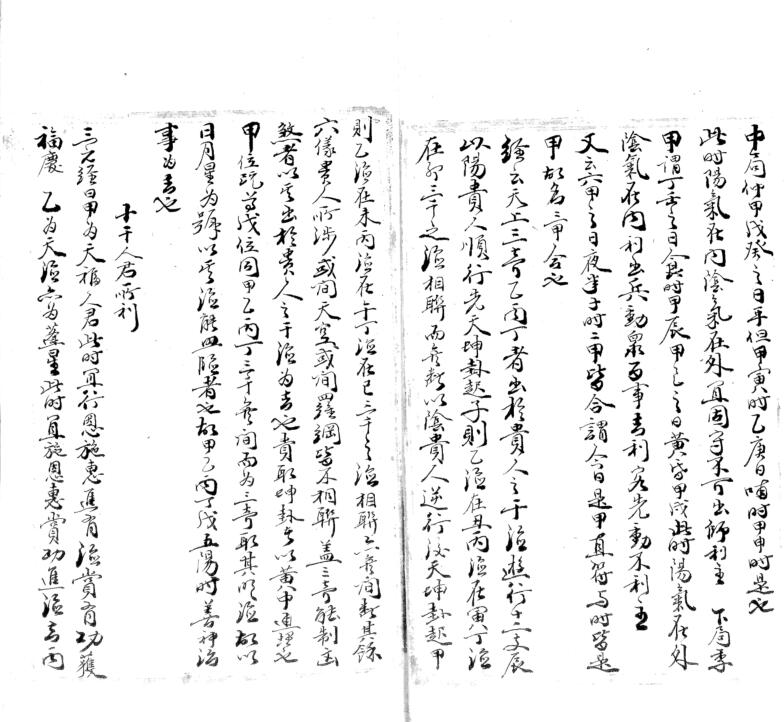 中局仲甲戊癸之日平但甲寅時乙庚日晡時甲申時是也
此時陽氣在內陰氣在外宜固守不可出師利主 下局季
甲謂丁壬之日食時甲辰甲己之日黃昏甲戌此時陽氣在外
陰氣在內利出兵動衆百事吉利客先動不利主
又云六甲之日夜半子時二甲皆合謂今日是甲直符与時皆是
甲故名三甲合也
經云天上三奇乙丙丁者出於貴人之干德遊行十二支辰
以陽貴人順行先天坤卦起子則乙德在丑丙德在寅丁德
在卯三干之德相聯而無間以陰貴人逆行後天坤卦起甲
則乙德在未丙德在午丁德在巳三干之德相聯亦無間其餘
六儀貴人所涉或間天空或間羅網皆不相聯蓋三奇能制凶
煞者以其出於貴人之干德為吉也貴取坤卦者以黃中通理也
甲位既尊戊位因甲乙丙丁三干無間而為三奇取其德故以
日月星為號以其德能照臨者也故甲乙丙丁戊五陽時善神治
事為吉也
十干人君所利
三元經曰甲為天福人君此時宜行恩施惠進有德賞有功獲
福慶 乙為天德亦為蓬星此時宜施恩惠賞功進德吉丙